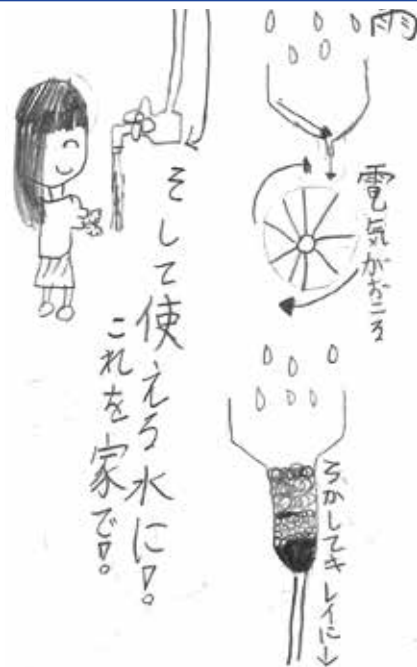 雨
電気がおこる
ろかしてキレイに↓
そして使える水に!。
これを家で!。